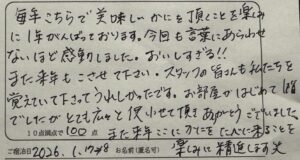 毎年こちらで美味しいかにを頂くことを楽しみ
に1年がんばっております。今回も言葉にあらわせ
ないほど感動しました。おいしすぎる!!
また来年もこさせて下さい。スタッフの皆さんも私たちを
覚えていて下さってうれしかったです。お部屋がはじめて1階
でしたが とても広々と使いやせて頂き ありがとうございました。
10点満点で100点 また来年ここにカニをたべに来ることを
ご宿泊日 2026.1.17〜18 お名前(匿名可) 楽しみに精進します笑